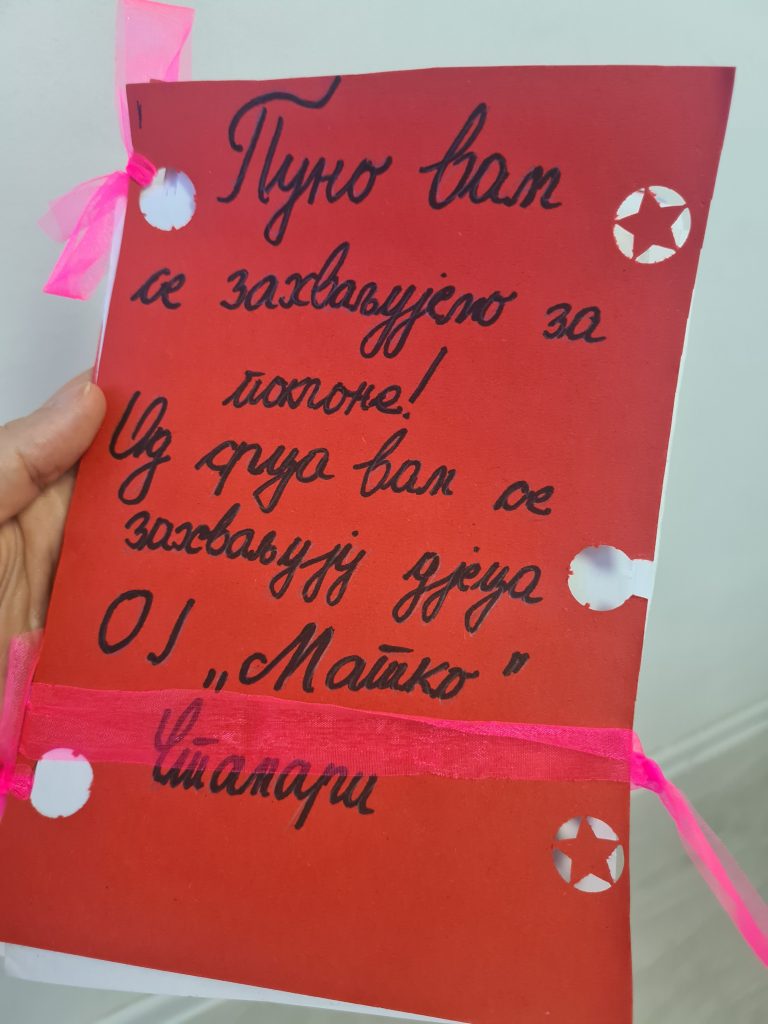 Пуно вам
се захваљујемо за
поклоне!
Од срца вам се
захваљују дјеца
ОЈ „Матко"
Штампари